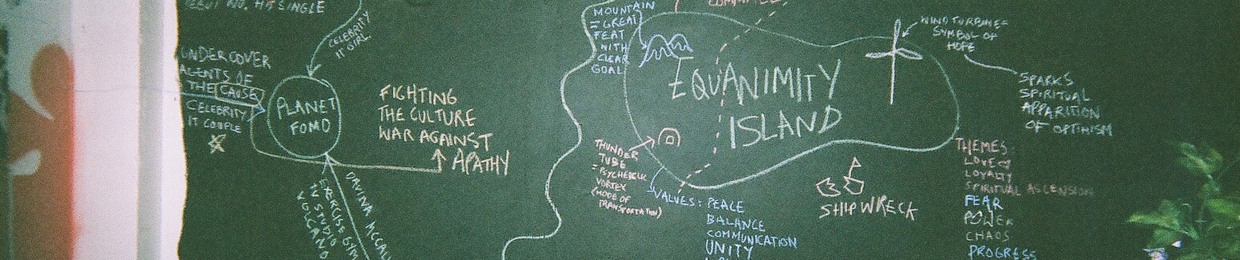 NO. H
SINGLE
CELEBRITY
IT GIRL
UNDERCOVER
AGENTS OF
THE CAUSE
CELEBRITY
IT COUPLE
PLANET
FOMO
FIGHTING
THE CULTURE
WAR AGAINST
APATHY
DAVINA
EXERCISE GYM
STUDIO
VOLCANO
MOUNTAIN
= GREAT
FEAT
WITH
CLEAR
GOAL
EQUANIMITY
ISLAND
WIND TURBINE =
SYMBOL OF
HOPE
SPARKS
SPIRITUAL
APPARITION
OF OPTIMISM
THUNDER
TUBE
= PSYCHEDELIC
VORTEX
(MODE OF
TRANSPORTATION)
VALUES: PEACE
BALANCE
COMMUNICATION
UNITY
SHIPWRECK
THEMES:
LOVE
LOYALTY
SPIRITUAL ASCENSION
FEAR
POWER
CHAOS
PROGRESS